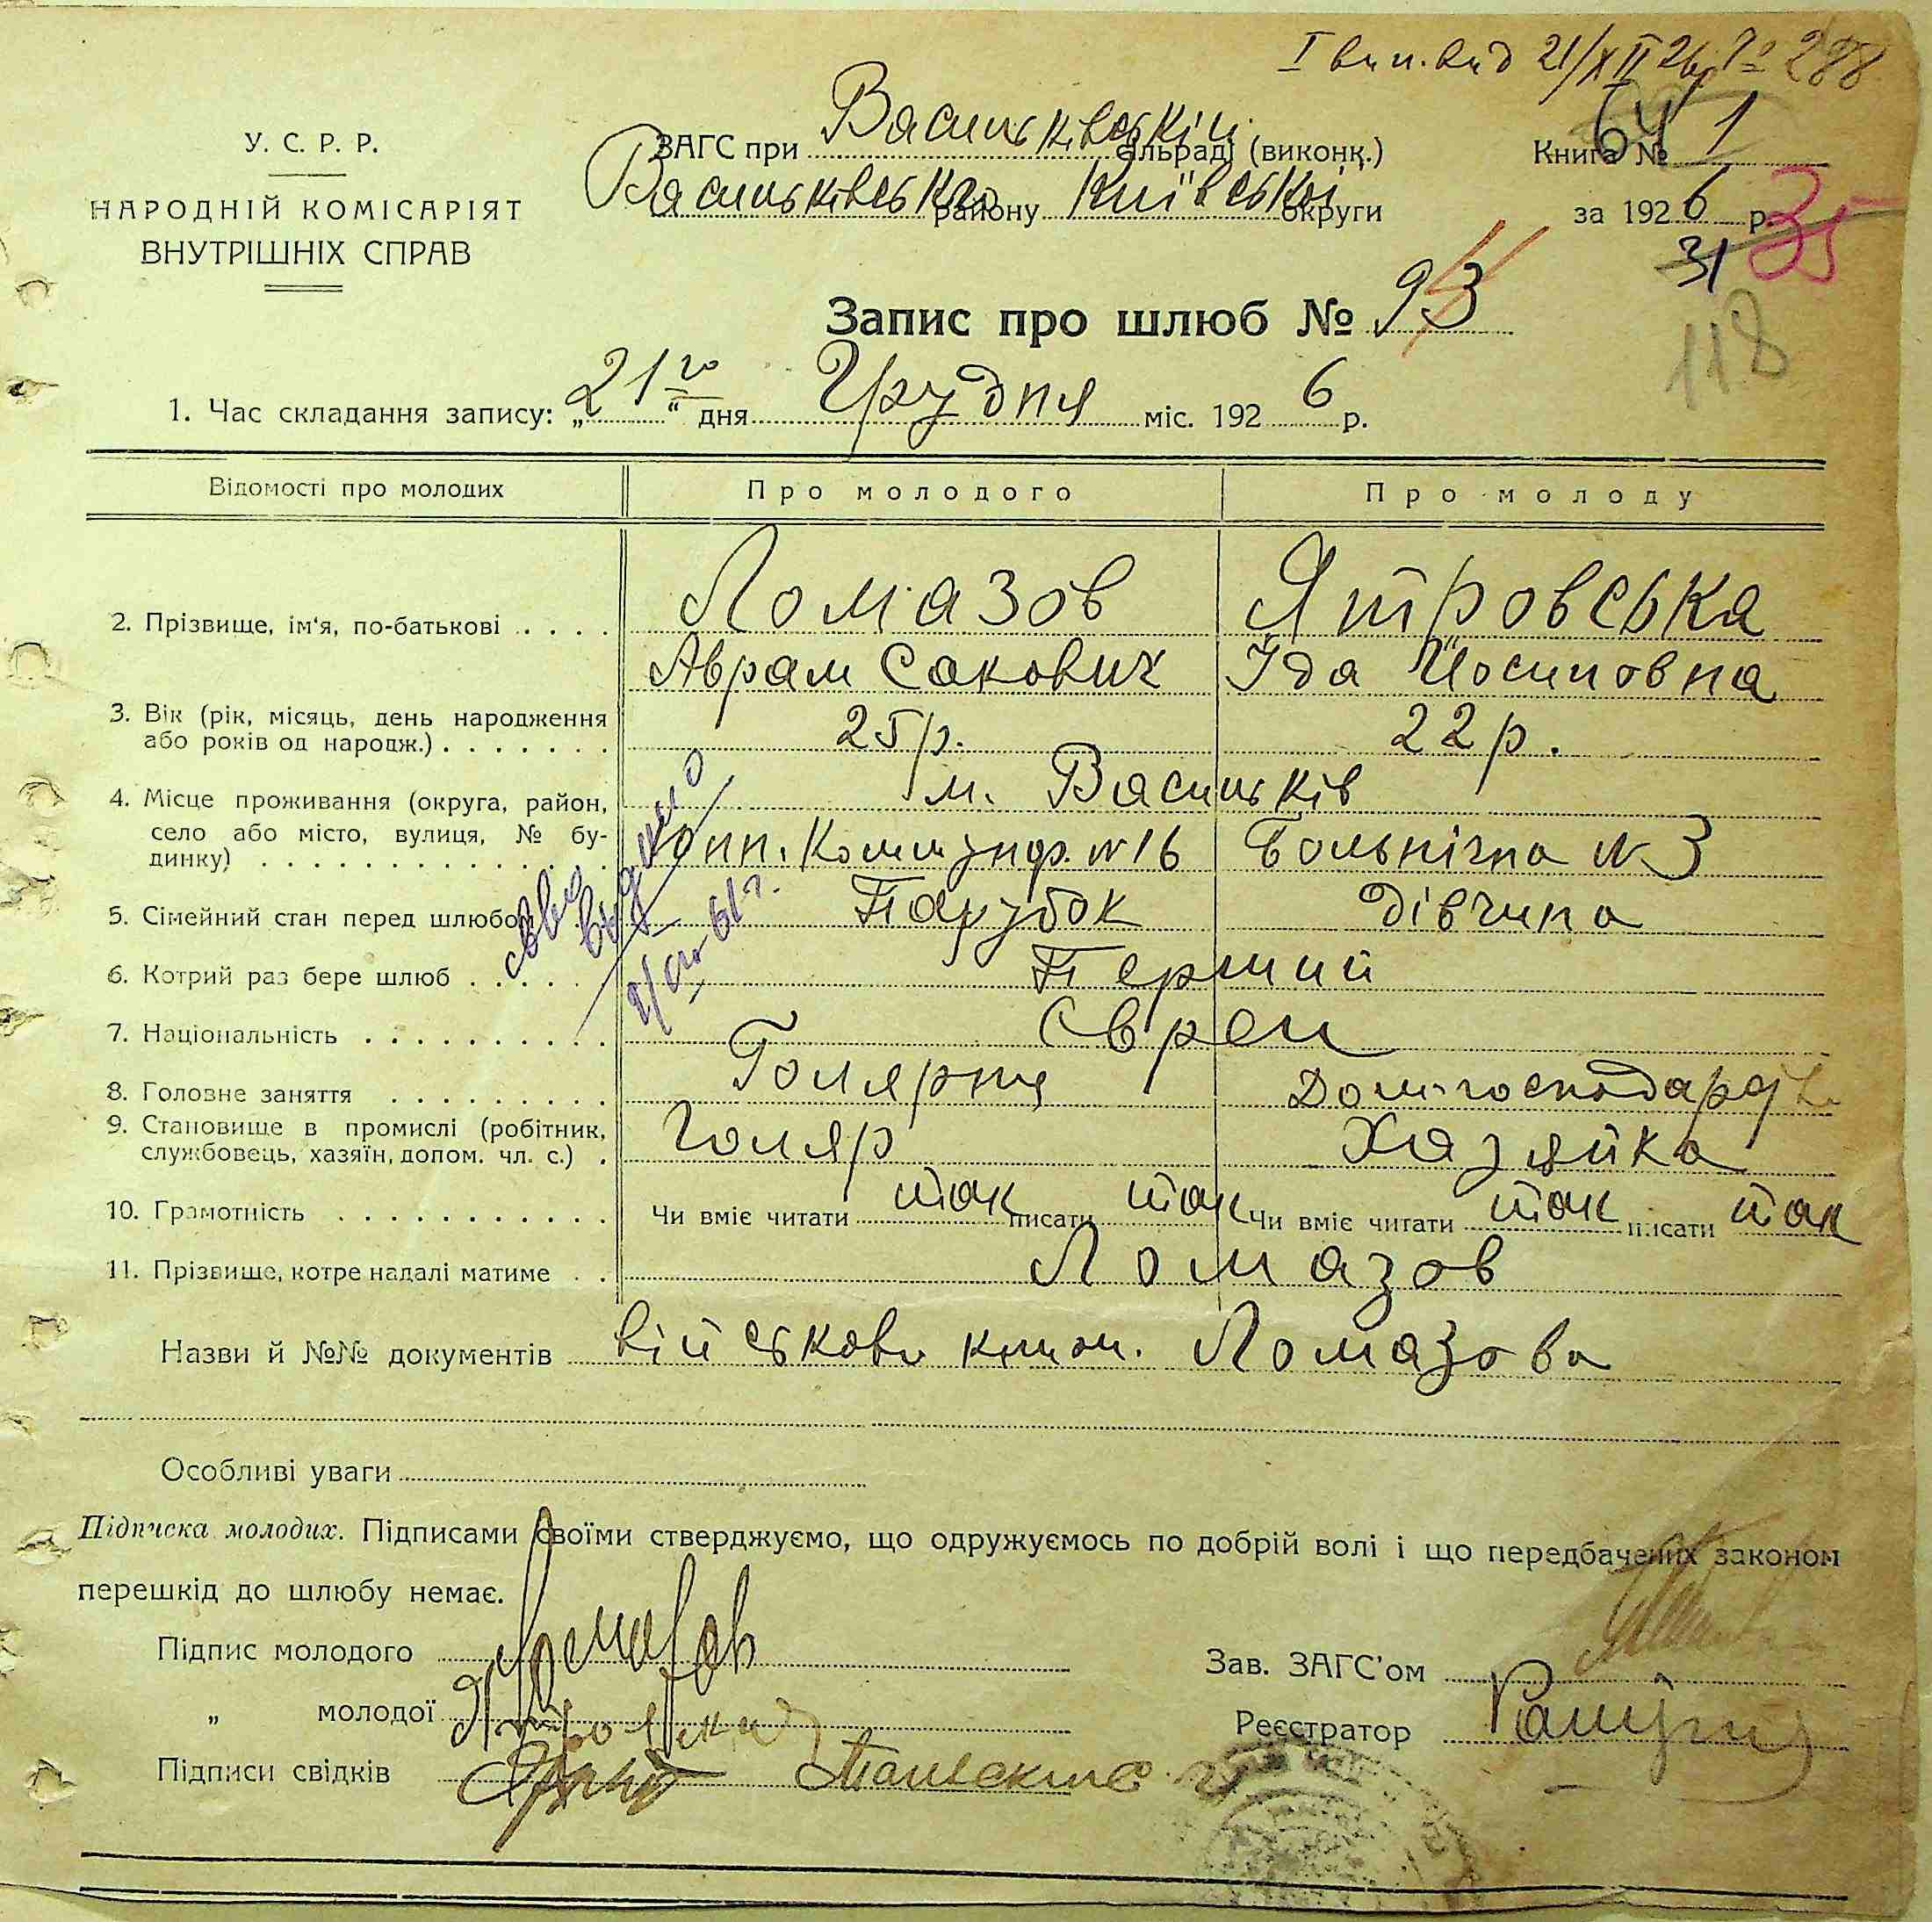 І вип. вид 21/XII 26 р. № 288
У. С. Р. Р.
НАРОДНІЙ КОМІСАРІЯТ
ВНУТРІШНІХ СПРАВ
ЗАГС при Васильківській сільраді (виконк.)
Васильківського району Київської округи
Книга № 64 1
за 1926 р. 35
31
118
Запис про шлюб № 93
1. Час складання запису: „21го“ дня Грудня міс. 1926 р.
Відомості про молодих Про молодого Про молоду
2. Прізвище, ім'я, по-батькові . . . . Ломазов Ятровська
Аврам Сакович Іда Йосиповна
3. Вік (рік, місяць, день народження
або років од народж.) . . . . . . . 25 р. 22 р.
4. Місце проживання (округа, район, м. Васильків
село або місто, вулиця, № бу-
динку) . . . . . . . . . . . . . . № 16 Больнічна № 3
5. Сімейний стан перед шлюбом Парубок Дівчина
6. Котрий раз бере шлюб . . . . . Перший
7. Національність . . . . . . . . . . Євреи
8. Головне заняття . . . . . . . . . Голярня Дом-господар
9. Становище в промислі (робітник,
службовець, хазяїн, допом. чл. с.) . Голяр Хазяйка
10. Грамотність . . . . . . . . . . . Чи вміє читати так писати так Чи вміє читати так писати так
11. Прізвище, котре надалі матиме . . Ломазов
Назви й №№ документів військова книж. Ломазова
Особливі уваги
Підписка молодих. Підписами своїми стверджуємо, що одружуємось по добрій волі і що передбачених законом
перешкід до шлюбу немає.
Підпис молодого Ломазов
Зав. ЗАГС'ом
„ молодої
Реєстратор
Підписи свідків